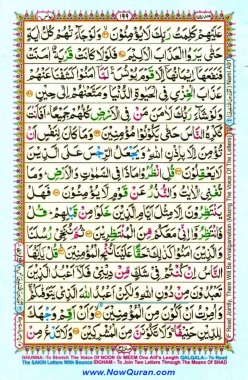 ۱۹۹
عَلَيْهِمْ كَلِمَتُ رَبِّكَ لَا يُؤْمِنُوْنَ وَلَوْ جَآءَتْهُمْ كُلُّ اٰيَةٍ
حَتّٰى يَرَوُا الْعَذَابَ الْاَلِيْمَ فَلَوْلَا كَانَتْ قَرْيَةٌ اٰمَنَتْ
فَنَفَعَهَاۤ اِيْمَانُهَاۤ اِلَّا قَوْمَ يُوْنُسَ لَمَّاۤ اٰمَنُوْا كَشَفْنَا عَنْهُمْ
عَذَابَ الْخِزْيِ فِى الْحَيٰوةِ الدُّنْيَا وَمَتَّعْنٰهُمْ اِلٰى حِيْنٍ
وَلَوْ شَآءَ رَبُّكَ لَاٰمَنَ مَنْ فِى الْاَرْضِ كُلُّهُمْ جَمِيْعًا اَفَاَنْتَ
تُكْرِهُ النَّاسَ حَتّٰى يَكُوْنُوْا مُؤْمِنِيْنَ وَمَا كَانَ لِنَفْسٍ اَنْ
تُؤْمِنَ اِلَّا بِاِذْنِ اللّٰهِ وَيَجْعَلُ الرِّجْسَ عَلَى الَّذِيْنَ
لَا يَعْقِلُوْنَ قُلِ انْظُرُوْا مَاذَا فِى السَّمٰوٰتِ وَالْاَرْضِ وَمَا
تُغْنِى الْاٰيٰتُ وَالنُّذُرُ عَنْ قَوْمٍ لَّا يُؤْمِنُوْنَ فَهَلْ
يَنْتَظِرُوْنَ اِلَّا مِثْلَ اَيَّامِ الَّذِيْنَ خَلَوْا مِنْ قَبْلِهِمْ قُلْ
فَانْتَظِرُوْۤا اِنِّىْ مَعَكُمْ مِّنَ الْمُنْتَظِرِيْنَ ثُمَّ نُنَجِّىْ رُسُلَنَا
وَالَّذِيْنَ اٰمَنُوْا كَذٰلِكَ حَقًّا عَلَيْنَا نُنْجِ الْمُؤْمِنِيْنَ قُلْ يٰۤاَيُّهَا
النَّاسُ اِنْ كُنْتُمْ فِىْ شَكٍّ مِّنْ دِيْنِىْ فَلَاۤ اَعْبُدُ الَّذِيْنَ
تَعْبُدُوْنَ مِنْ دُوْنِ اللّٰهِ وَلٰكِنْ اَعْبُدُ اللّٰهَ الَّذِىْ يَتَوَفّٰىكُمْ
وَاُمِرْتُ اَنْ اَكُوْنَ مِنَ الْمُؤْمِنِيْنَ وَاَنْ اَقِمْ وَجْهَكَ
لِلدِّيْنِ حَنِيْفًا وَلَا تَكُوْنَنَّ مِنَ الْمُشْرِكِيْنَ وَلَا تَدْعُ مِنْ
GHUNNA:-To Stretch The Voice Of NOON Or MEEM One Alif's Length QALQALA:- To Read
The SAKIN Letters With Bounce IDGHAM:- To Join Two Letters Through The Means Of SHAD
www.NowQuran.com